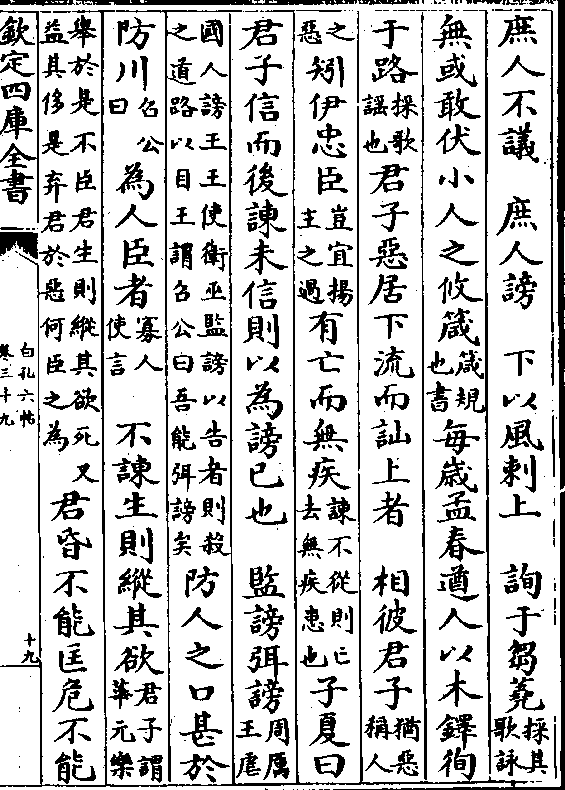 庶人不議　庶人謗　下以風刺上　詢于芻蕘採其歌詠
無或敢伏小人之攸箴箴規也書每歲孟春遒人以木鐸徇
于路採歌謡也君子惡居下流而訕上者　相彼君子猶惡稱人
之惡矧伊忠臣豈宜揚主之過有亡而無疾諫不從則亡去無疾患也子夏曰
君子信而後諫未信則以為謗已也　監謗弭謗周厲王虐
國人謗王王使衛巫監謗以告者則殺之道路以目王謂召公曰吾能弭謗矣防人之口甚於
防川召公曰為人臣者寡人使言　不諫生則縱其欲君子謂華元樂
舉於是不臣君生則縱其欲死又益其侈是弃君於惡何臣之為君昏不能匡危不能
欽定四庫全書
白孔六帖
卷三十九
十九